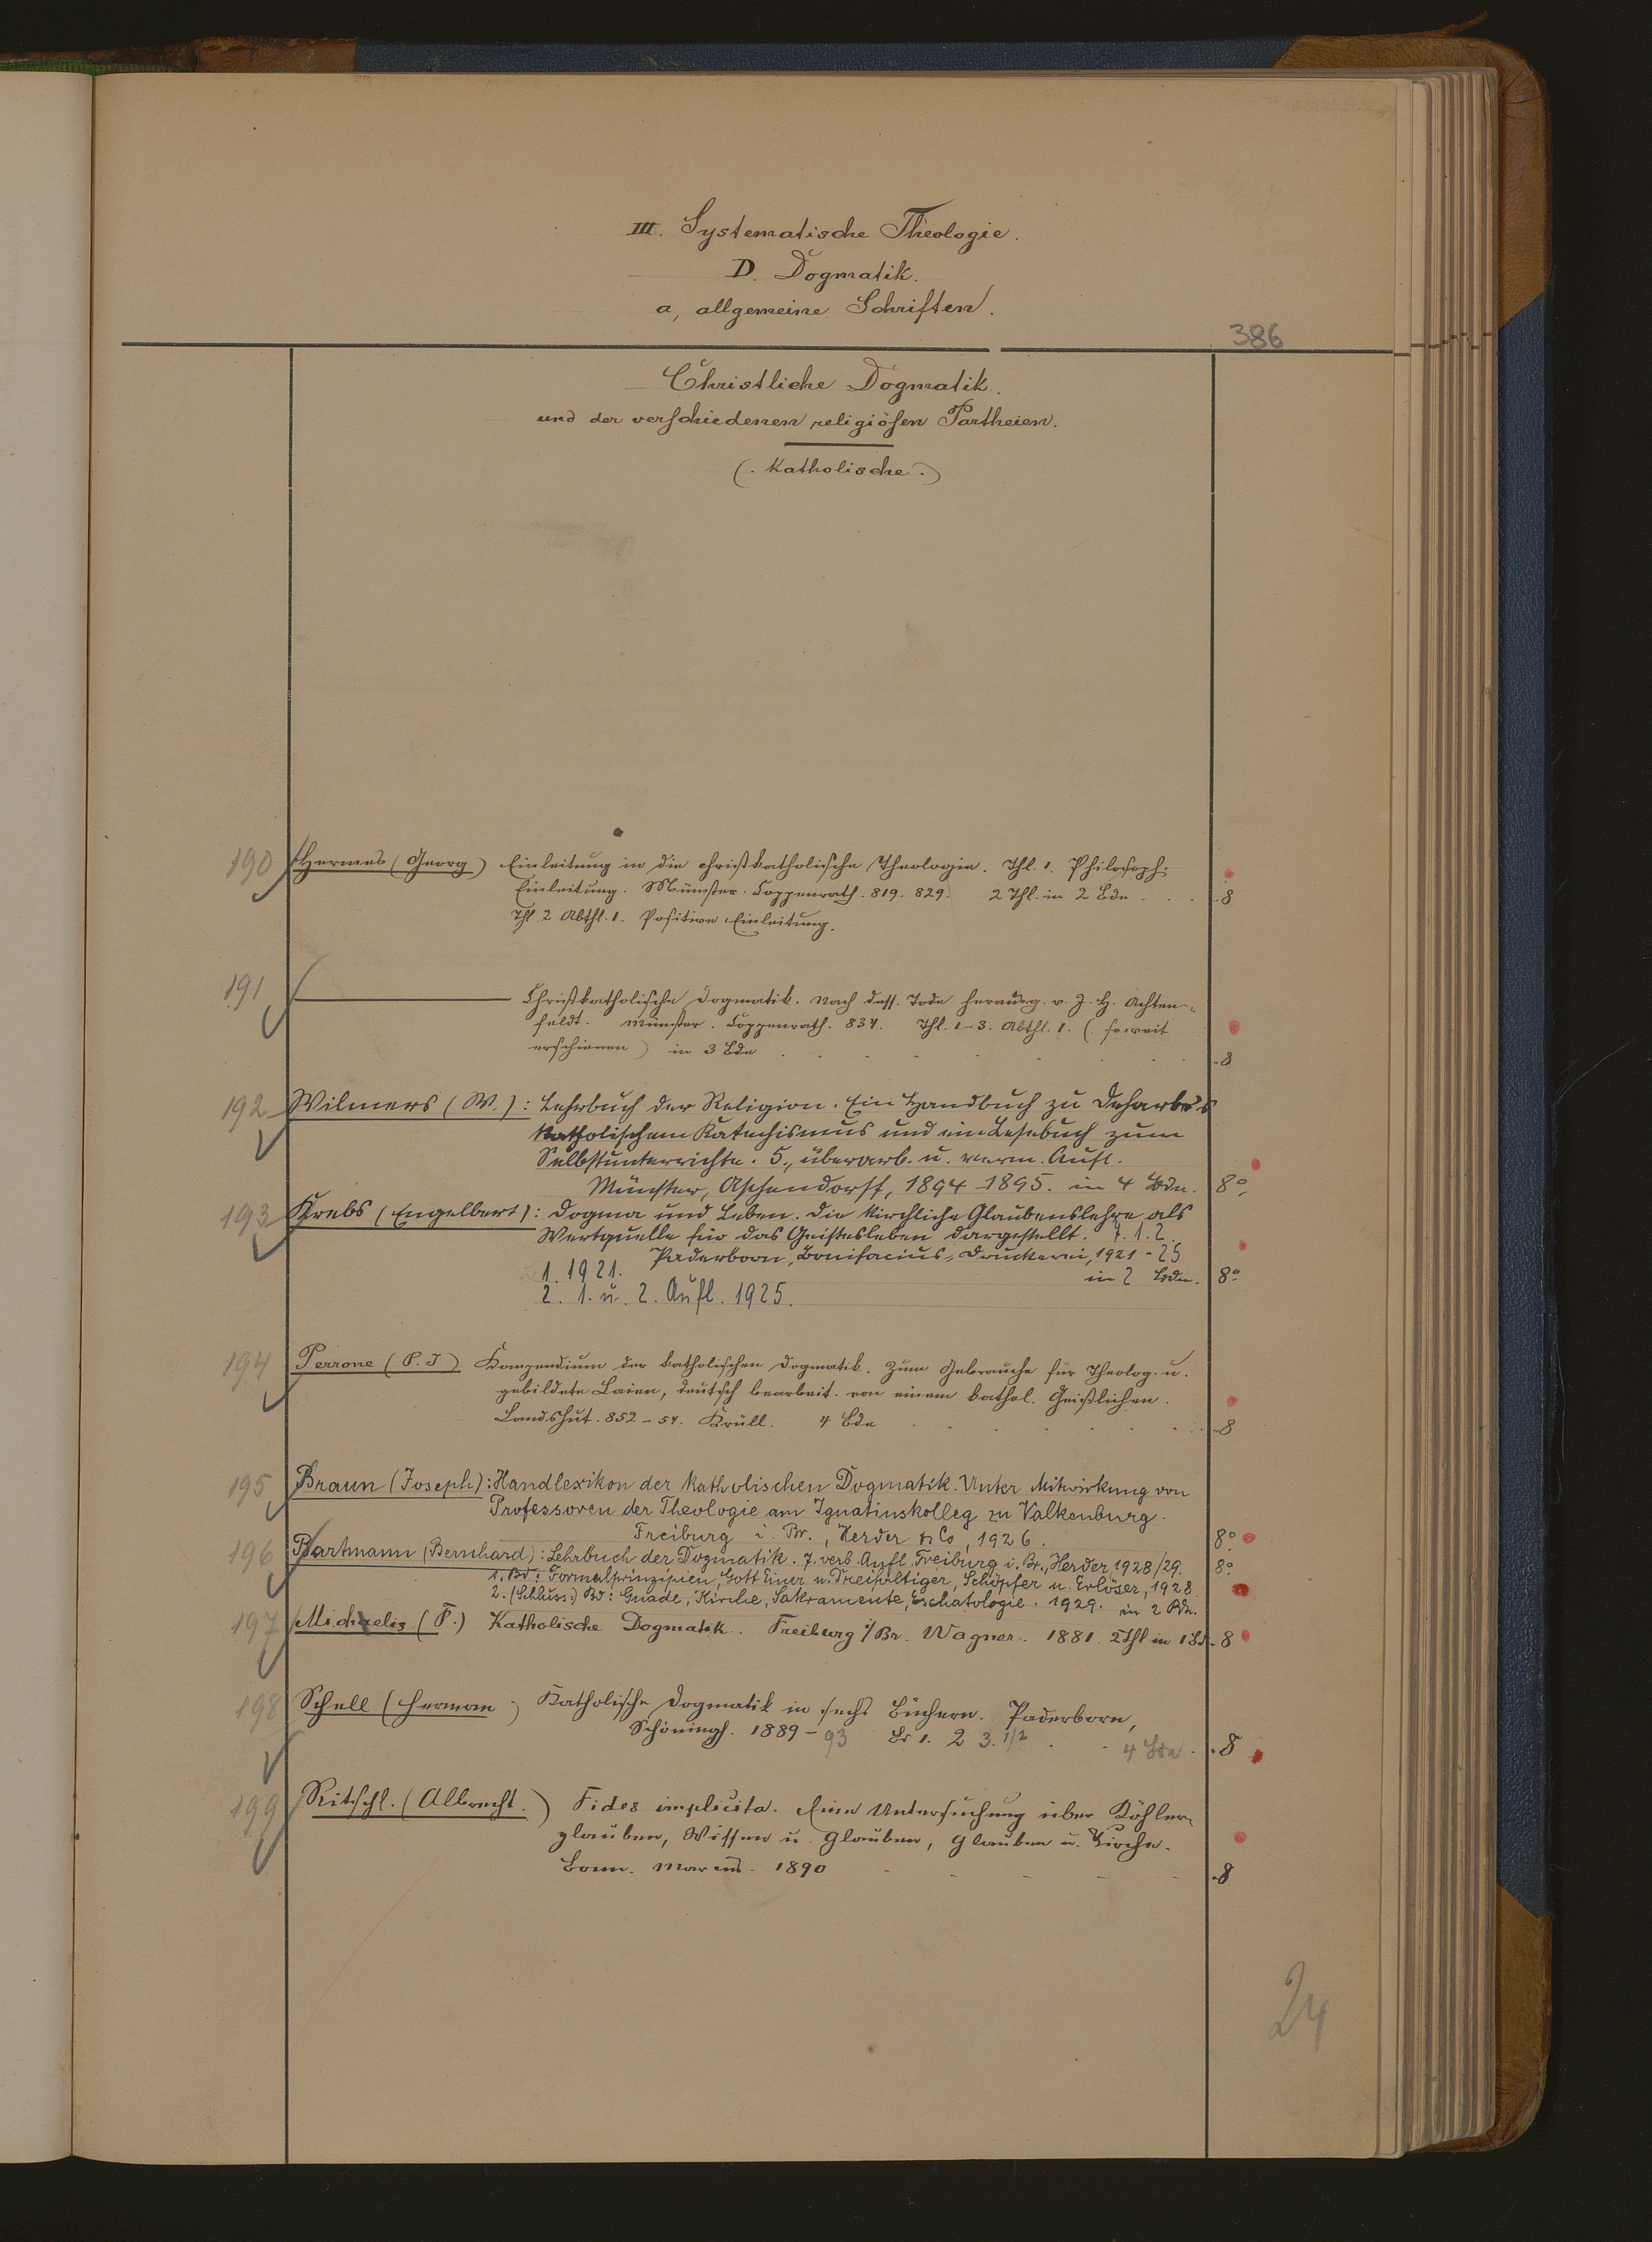 III. Systematische Theologie.
D. Dogmatik.
a, allgemeine Schriften.
386
Christliche Dogmatik.
und der verschiedenen religiösen Partheien.
(. Katholische .)
190 Hermes (Georg) Einleitung in die christkatholische Theologie. Thl. 1. Philosoph:
Einleitung. Münster. Coppenrath. 819. 829. 2 Thl. in 2 Bde . . . 8
Thl. 2 Abthl. 1. Positive Einleitung.
191 ——— Christkatholische Dogmatik. Nach dess. Tode herausg. v. J. H. Achten-
feldt. Münster. Coppenrath. 834. Thl. 1–3. Abthl. 1. (soweit
erschienen) in 3 Bde . . . . . 8
192 Wilmers (W.): Lehrbuch der Religion. Ein Handbuch zu Deharbe's
Katholischem Katechismus und ein Lesebuch zum
Selbstunterrichte. 5., überarb. u. verm. Aufl.
Münster, Aschendorff, 1894–1895. in 4 Bdn. 8°.
193 Krebs (Engelbert): Dogma und Leben. Die kirchliche Glaubenslehre als
Wertquelle für das Geistesleben dargestellt. T. 1. 2.
Paderborn, Bonifacius-Druckerei, 1921 - 25
1. 1921. in 2 Bdn. 8°
2. 1. u. 2. Aufl. 1925.
194 Perrone (P. J) Kompendium der katholischen Dogmatik. Zum Gebrauche für Theolog. u.
gebildete Laien, deutsch bearbeit. von einem kathol. Geistlichen.
Landshut. 852–54. Krüll. 4 Bde . . . . . 8
195 Braun (Joseph): Handlexikon der katholischen Dogmatik. Unter Mitwirkung von
Professoren der Theologie am Ignatiuskolleg zu Valkenburg.
Freiburg i. Br., Herder & Co, 1926. 8°.
196 Bartmann (Bernhard): Lehrbuch der Dogmatik. 7. verb. Aufl. Freiburg i. Br., Herder 1928/29. 8°
1. Bd: Formalprinzipien, Gott Einer u. Dreifaltiger, Schöpfer u. Erlöser, 1928.
2. (Schluss:) Bd: Gnade, Kirche, Sakramente, Eschatologie. 1929. in 2 Bdn.
197 Michaelis (F.) Katholische Dogmatik. Freiburg i/Br. Wagner. 1881. 2 Thl in 1 Bd. 8
198 Schell (Herman) Katholische Dogmatik in sechs Büchern. Paderborn,
Schöningh. 1889–93 Bd 1. 2 3. 1/2 . . 4 Bde . 8
199 Ritschl. (Albrecht.) Fides implicita. Eine Untersuchung über Köhler-
glauben, Wissen u. Glauben, Glauben u. Kirche.
Bonn. Marcus. 1890 . . . . . 8
24